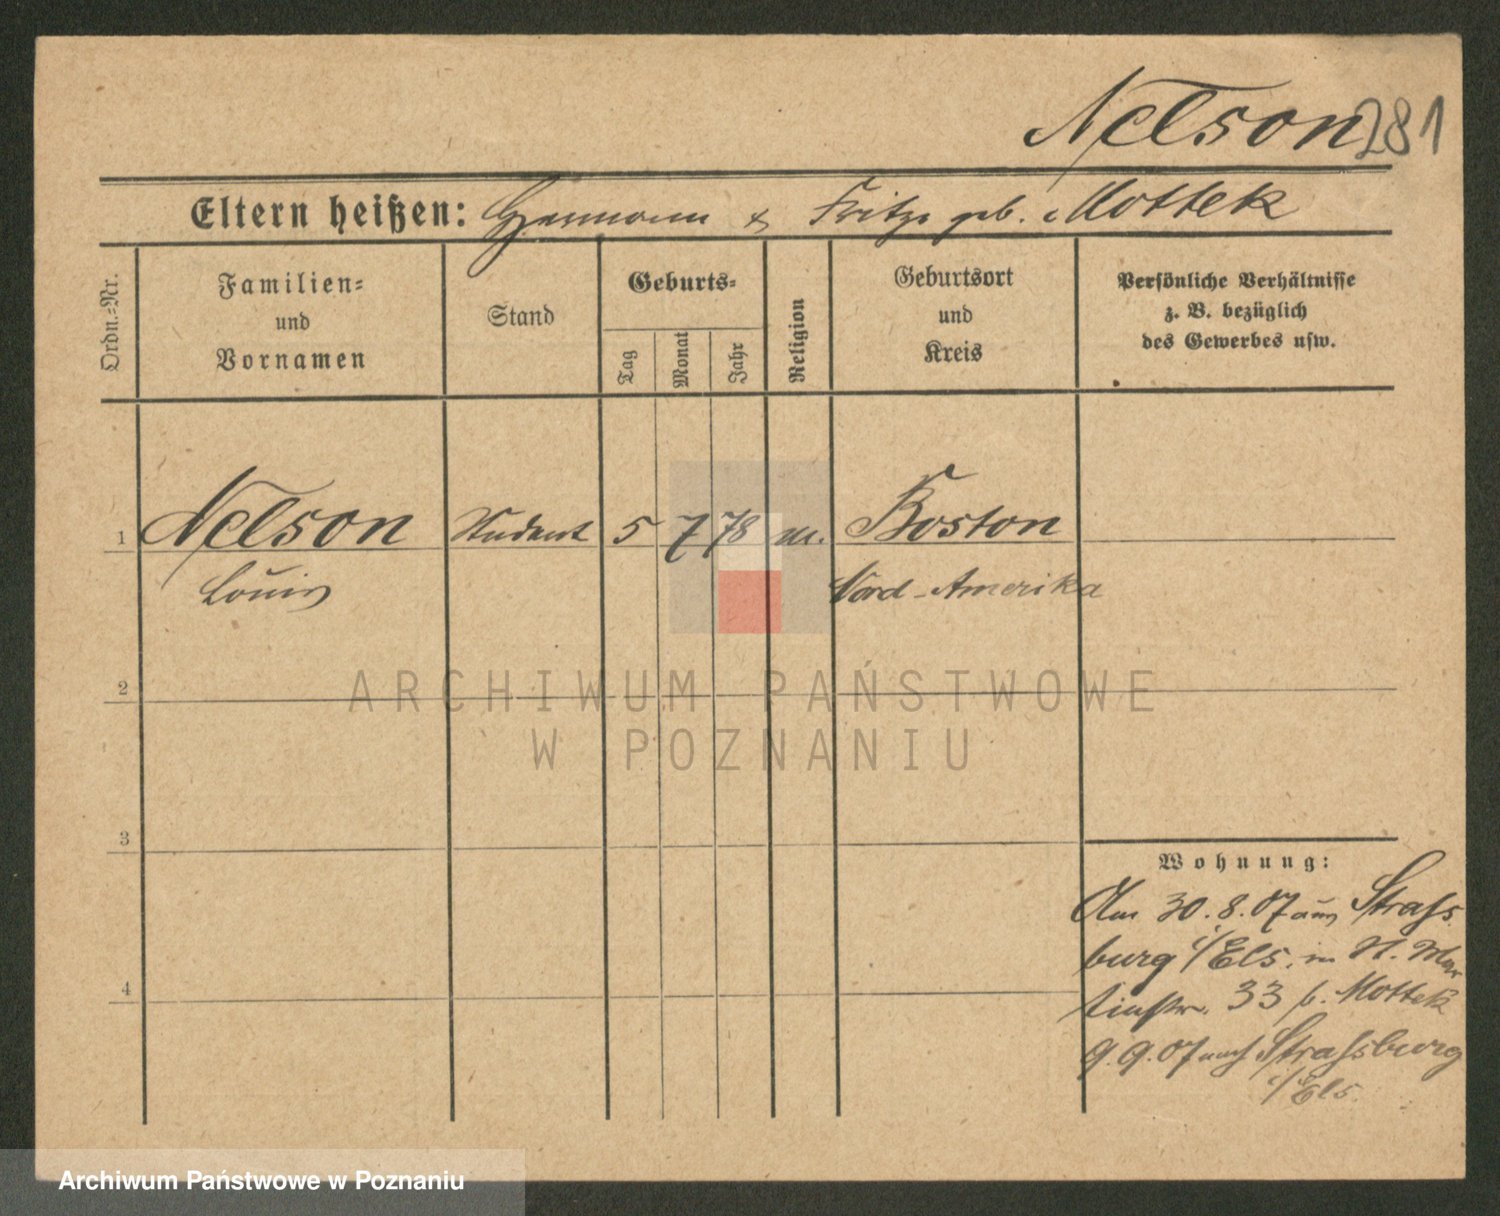 Nelson 281
Eltern heißen: Hermann & Fritze geb. Mottek
Ordn.-Nr.
Familien-
und
Vornamen
Stand
Geburts-
Tag
Monat
Jahr
Religion
Geburtsort
und
Kreis
Persönliche Verhältnisse
z. B. bezüglich
des Gewerbes usw.
1 Nelson Student 5 7 78 m. Boston
Louis Nord-Amerika
2
ARCHIWUM PAŃSTWOWE
W POZNANIU
3
Wohnung:
Am 30.8.07 aus Strass
burg i/Els. in St. Mar
tinstr. 33 b. Mottek
4
9.9.07 nach Strassburg
i/Els.
Archiwum Państwowe w Poznaniu